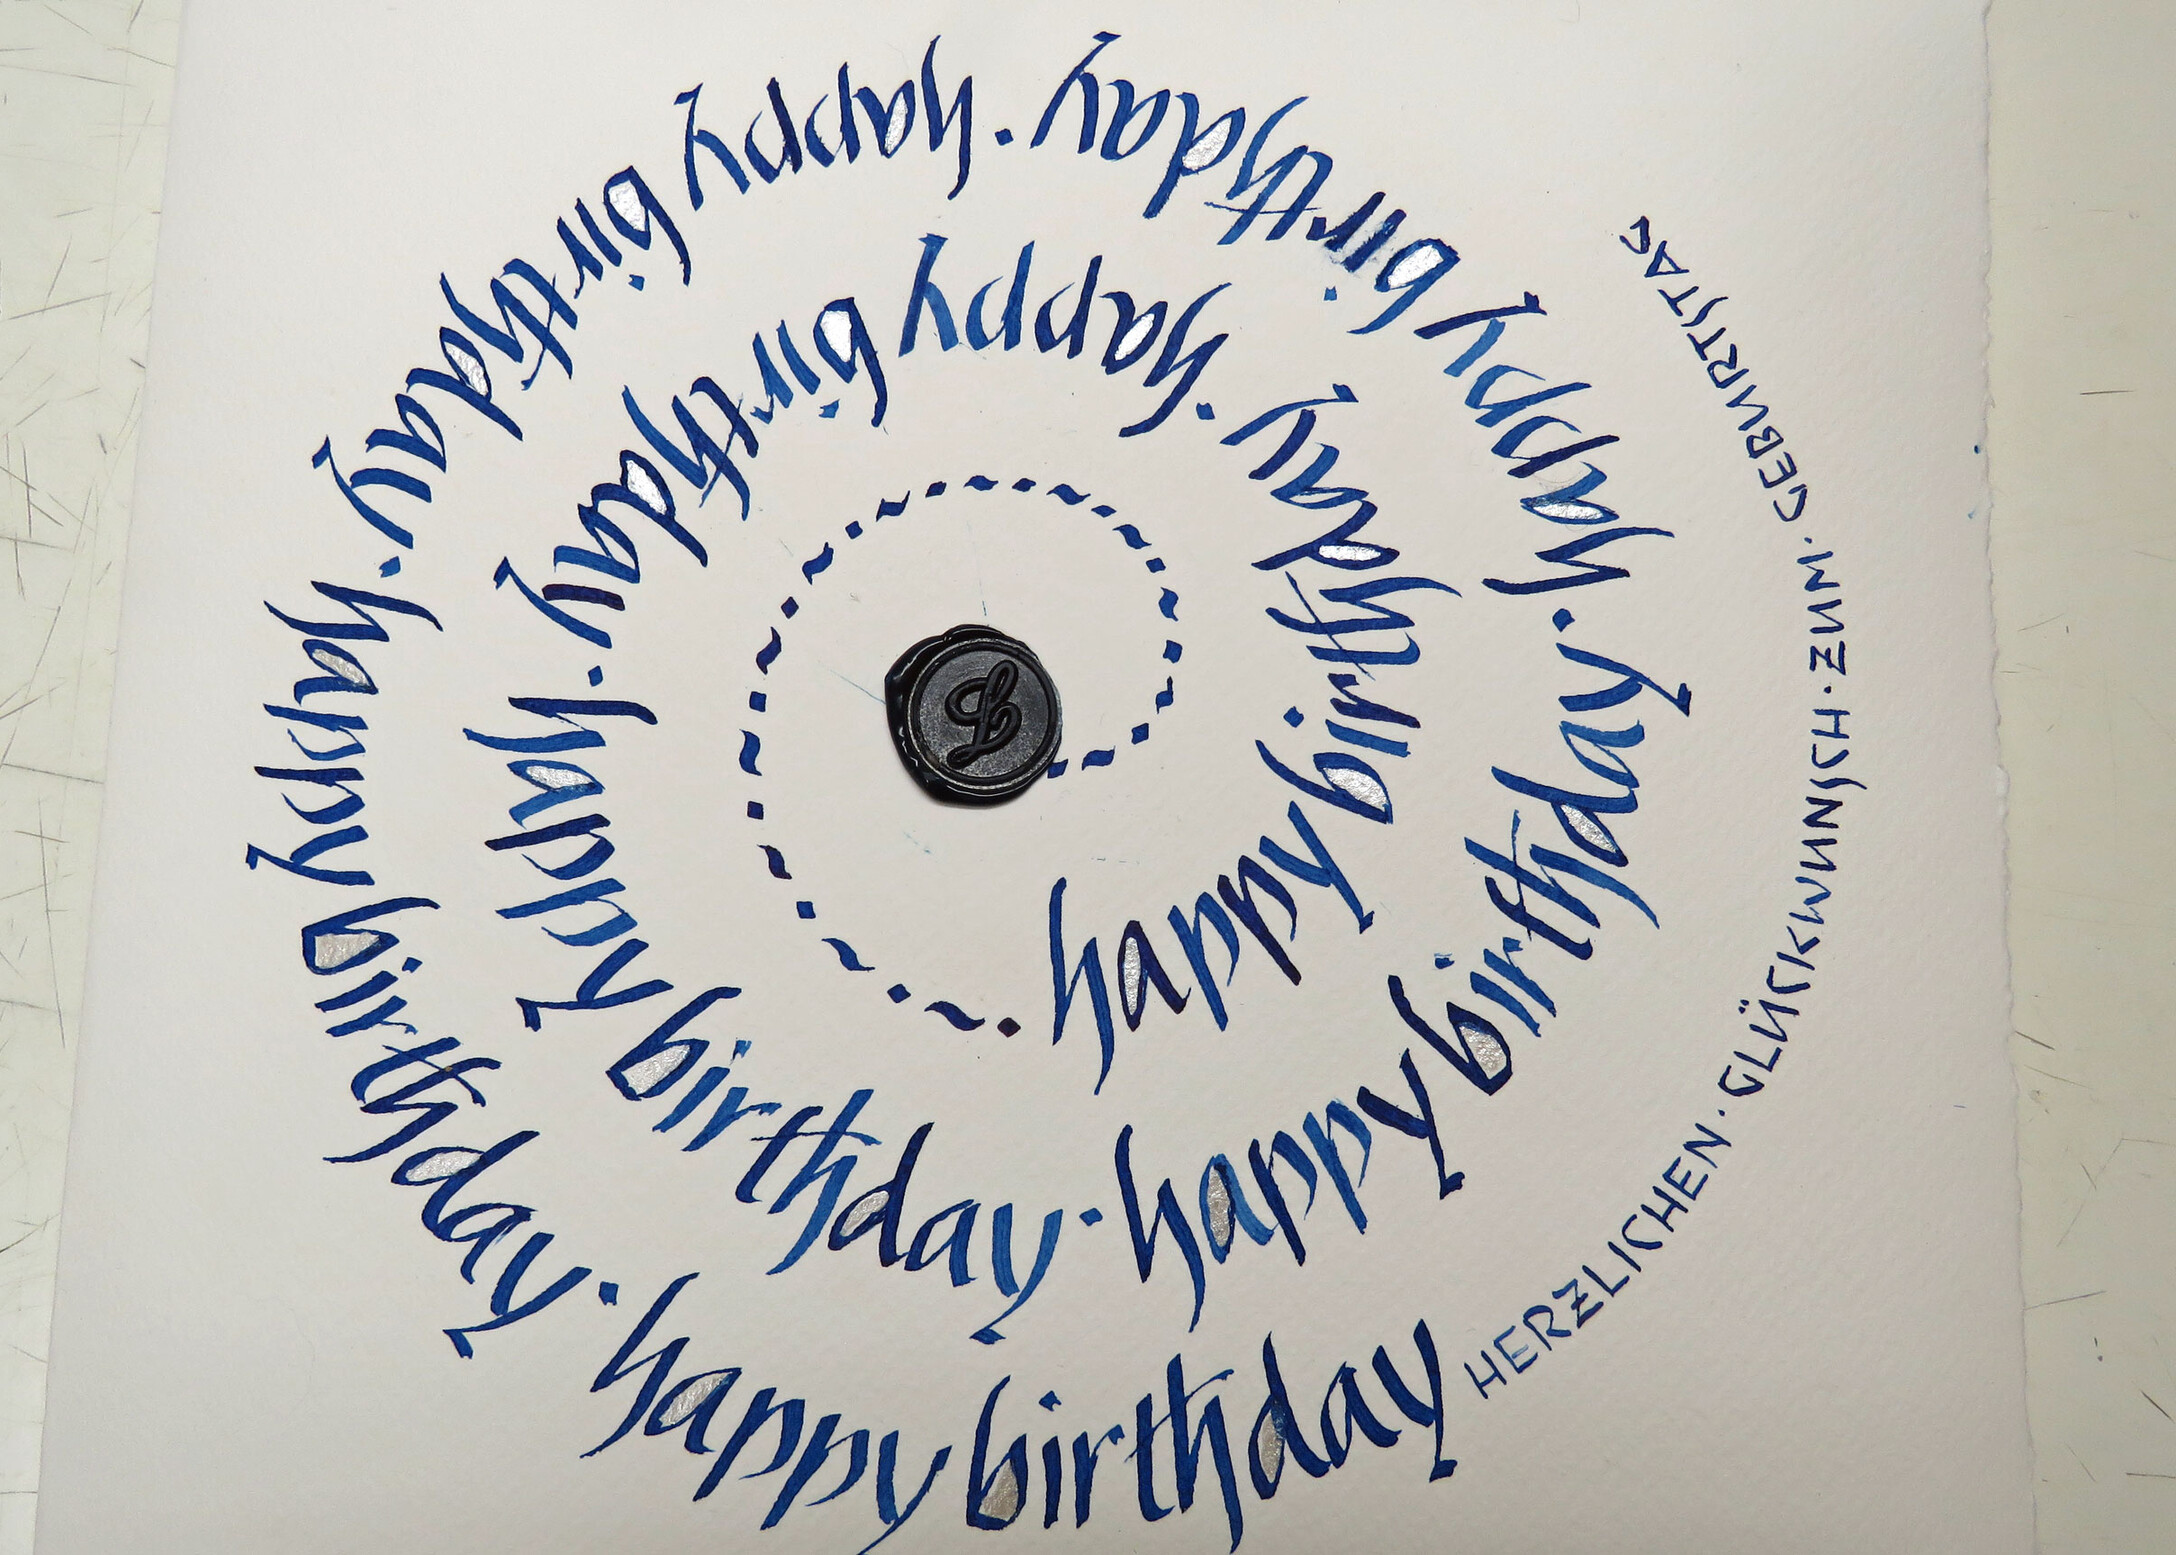 happy birthday · happy birthday · happy birthday · happy birthday · happy birthday · happy birthday · happy birthday · happy birthday
HERZLICHEN · GLÜCKWUNSCH · ZUM · GEBURTSTAG